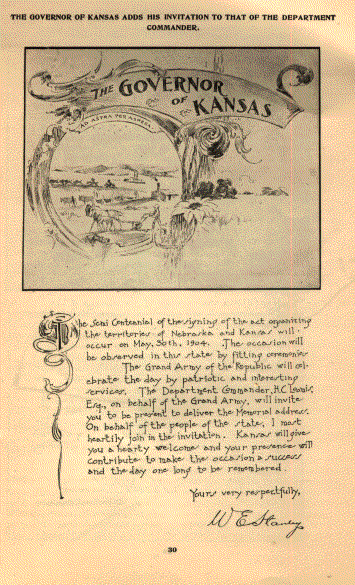 THE GOVERNOR OF KANSAS ADDS HIS INVITATION TO THAT OF THE DEPARTMENT
COMMANDER.
THE GOVERNOR
OF KANSAS
AD ASTRA PER ASPERA
The Semi Centennial of the signing of the act organizing
the territories of Nebraska and Kansas will
occur on May, 30th, 1904. The occasion will
be observed in this state by fitting ceremonies
The Grand Army of the Republic will cel-
ebrate the day by patriotic and interesting
services. The Department Commander, H.C. Loomis,
Esq., on behalf of the Grand Army, will invite
you to be present to deliver the Memorial address.
On behalf of the people of the state, I most
heartily join in the invitation. Kansas will give
you a hearty welcome and your presence will
contribute to make the occasion a success
and the day one long to be remembered.
Yours very respectfully,
W E Stanley
30